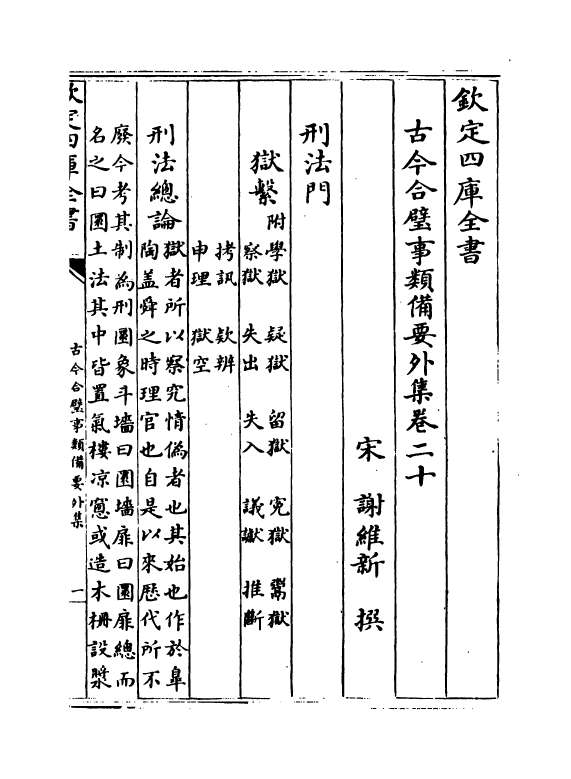 欽定四庫全書
古今合璧事類備要外集卷二十
宋 謝維新 撰
刑法門
獄繫
附學獄 疑獄 留獄 冤獄 鬻獄
察獄 失出 失入 議讞 推斷
拷訊 欵辨
申理 獄空
刑法總論
獄者所以察究情偽者也其始也作於臯
陶盖舜之時理官也自是以來歴代所不
廢今考其制為刑圜象斗墻曰圜墻扉曰圜扉總而
名之曰圜土法其中皆置氣樓凉窻或造木柵設漿
欽定四庫全書
古今合璧事類備要外集
一